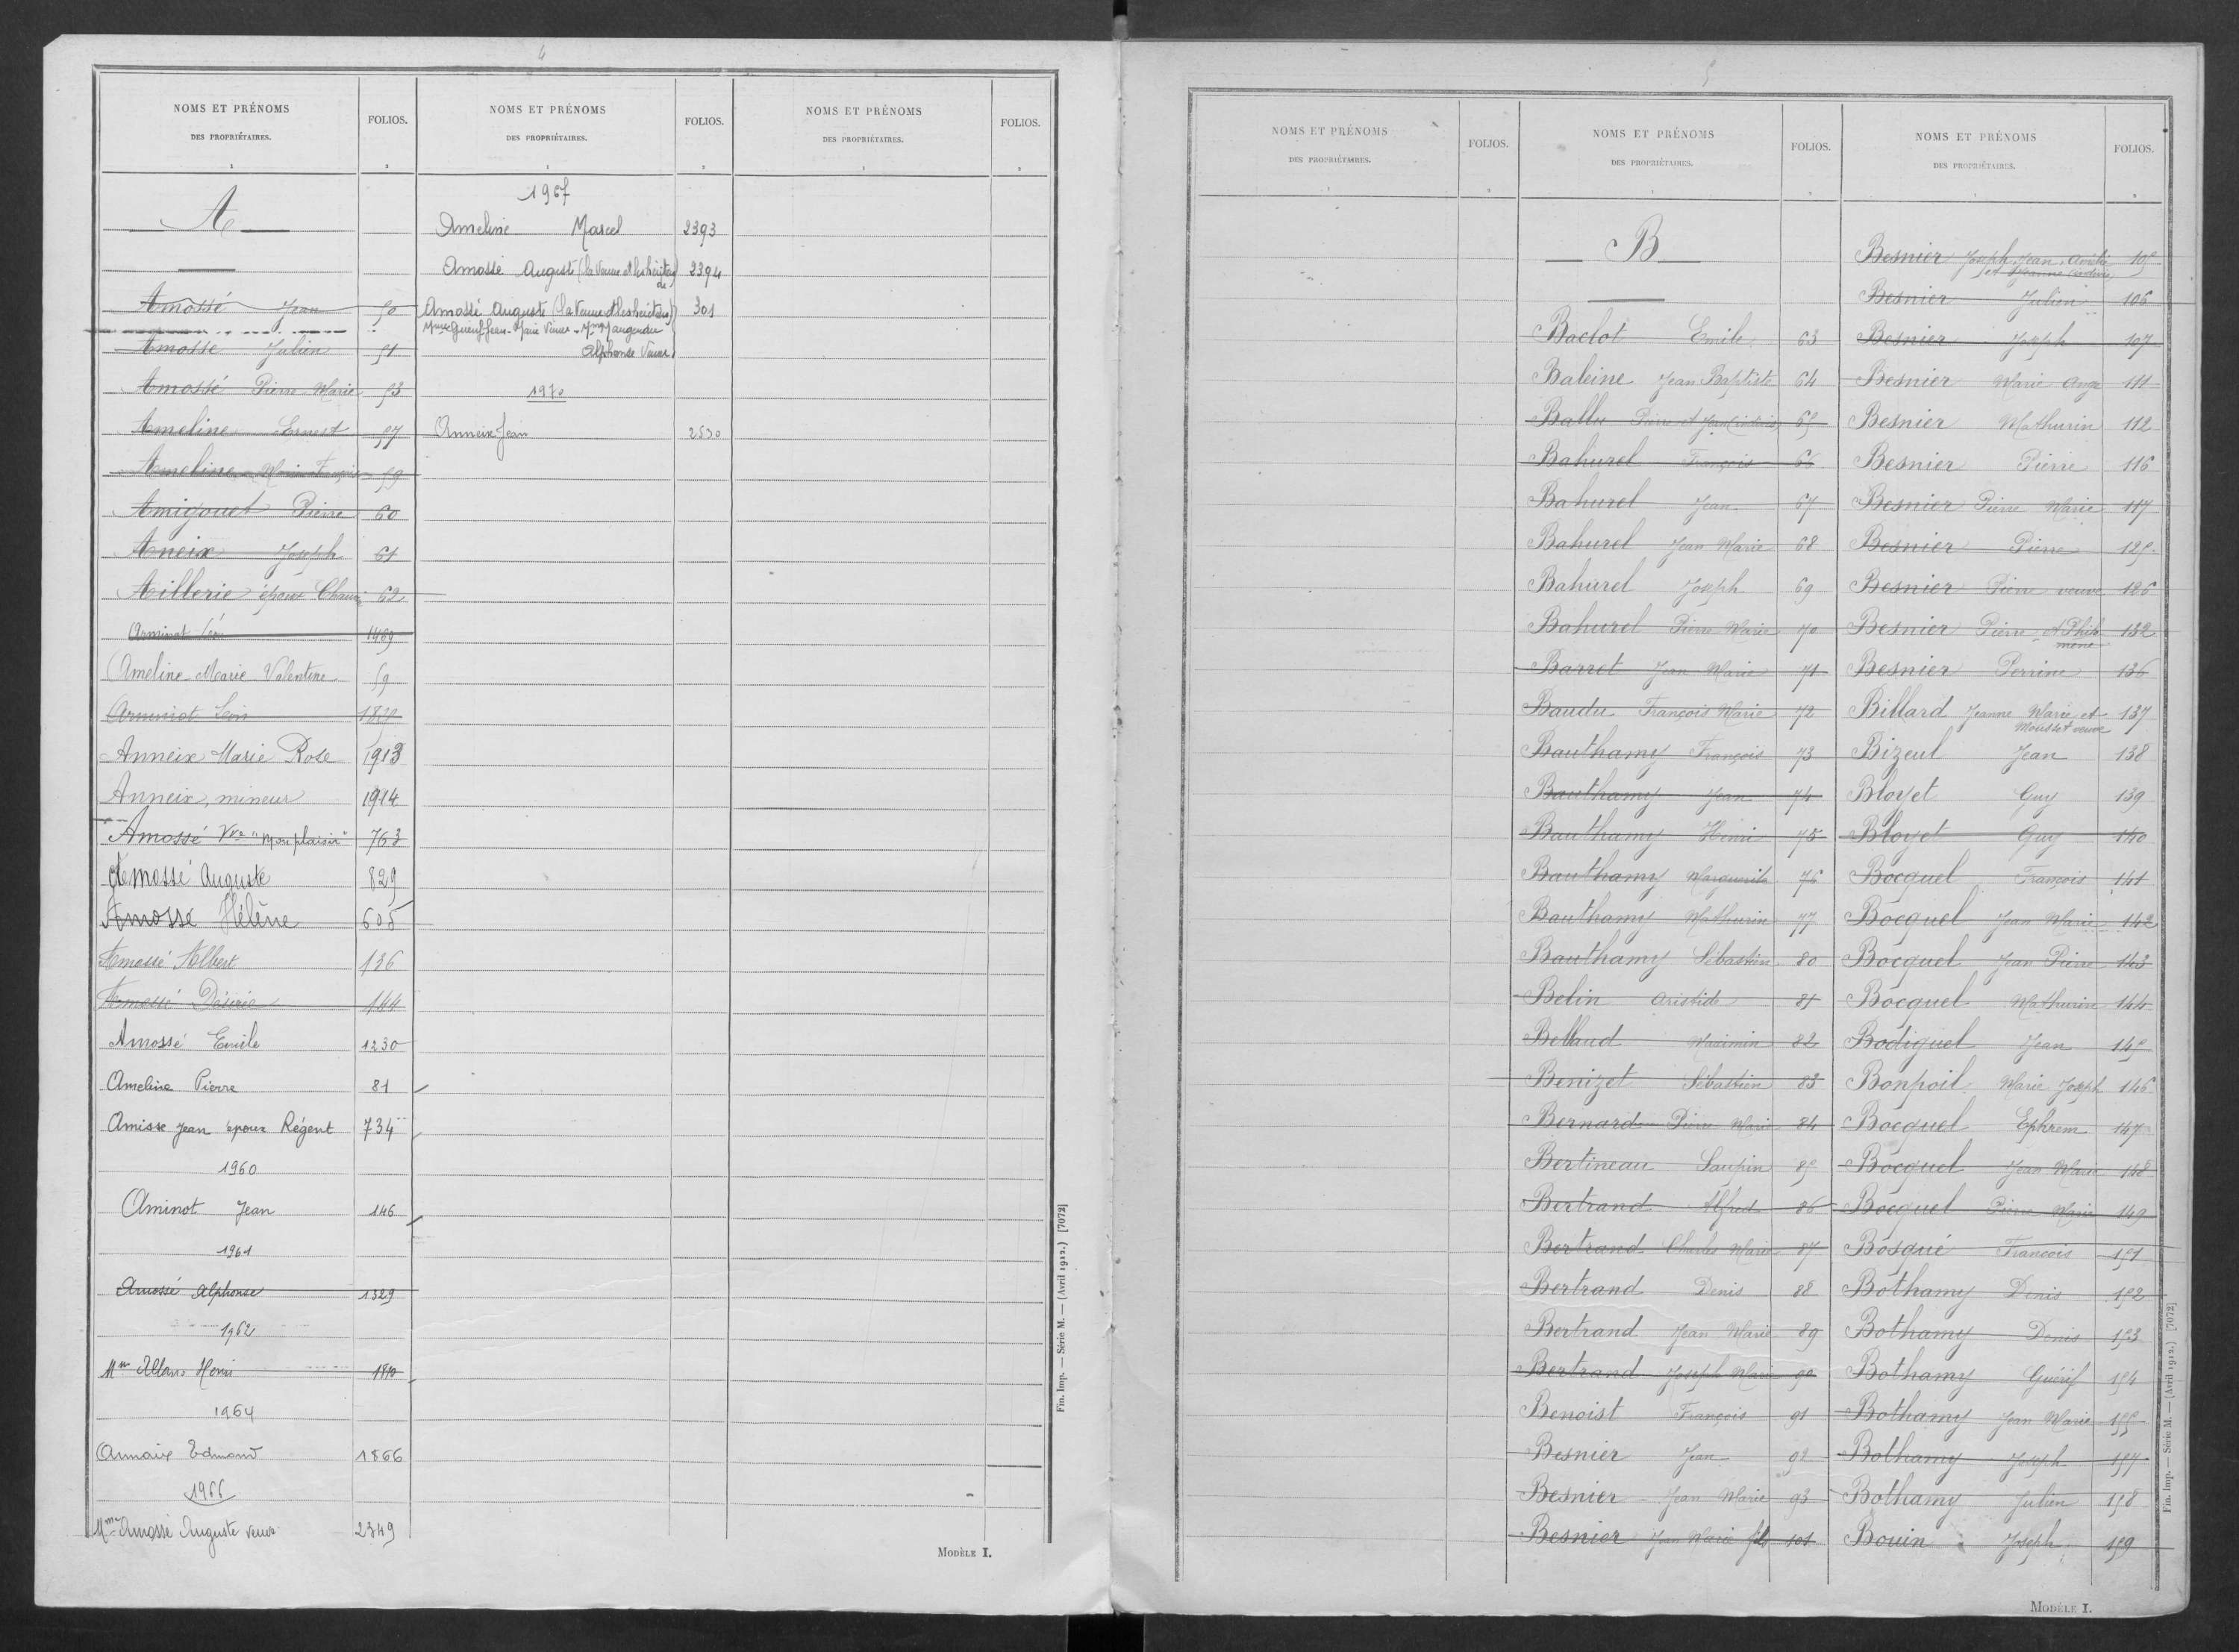 4
NOMS ET PRÉNOMS
DES PROPRIÉTAIRES.
FOLIOS.
1
2
A
Amossé Jean 50
Amossé Julien 51
Amossé Pierre Marie 53
Ameline Ernest 57
Ameline Marie Françoise 59
Amigouet Pierre 60
Aneix Joseph 61
Aillerie époux 62
Arminot Léon 1469
Ameline Marie Valentine 59
Arminot Léon
Anneix Marie Rose 1913
Anneix, mineur 1914
Amossé Vve "Mon plaisir" 763
Amossé Auguste 829
Amossé Hélène 605
Amossé Albert 126
Amossé Désirée 144
Amossé Emile 1230
Ameline Pierre 81
Amisse Jean époux Régent 734
1960
Aminot Jean 146
1961
Amossé Alphonse 1329
1962
Mme Allain Henri 1810
1964
Annaix Edmond 1866
1966
Mme Amossé Auguste veuve 2349
NOMS ET PRÉNOMS
DES PROPRIÉTAIRES.
FOLIOS.
1
2
1967
Ameline Marcel 2393
Amossé Auguste (la Veuve et les héritiers de) 2394
Amossé Auguste (la Veuve et les héritiers) 301
Jean-Marie Veuve - Mme Maugendre
Alphonse Veuve
1970
Anneix Jean 2530
NOMS ET PRÉNOMS
DES PROPRIÉTAIRES.
FOLIOS.
1
2
Fin. Imp. — Série M. — (Avril 1912.) [7072]
MODÈLE I.
5
NOMS ET PRÉNOMS
DES PROPRIÉTAIRES.
FOLIOS.
NOMS ET PRÉNOMS
DES PROPRIÉTAIRES.
FOLIOS.
B
Baclot Emile 63
Baleine Jean Baptiste 64
Ballu Pierre et Jean 65
Bahurel François 66
Bahurel Jean 67
Bahurel Jean Marie 68
Bahurel Joseph 69
Bahurel Pierre Marie 70
Barret Jean Marie 71
Baudu François Marie 72
Bauthamy François 73
Bauthamy Jean 74
Bauthamy Henri 75
Bauthamy Marguerite 76
Bauthamy Mathurin 77
Bauthamy Sébastien 80
Belin Aristide 81
Bellaud Maximin 82
Benizet Sébastien 83
Bernard Pierre Marie 84
Bertineau Saupin 85
Bertrand Alfred 86
Bertrand Charles Marie 87
Bertrand Denis 88
Bertrand Jean Marie 89
Bertrand Joseph Marie 90
Benoist François 91
Besnier Jean 92
Besnier Jean Marie 93
Besnier Jean Marie fils 101
NOMS ET PRÉNOMS
DES PROPRIÉTAIRES.
FOLIOS.
Besnier Joseph, Jean, Amélie 105
et Jeanne
Besnier Julien 106
Besnier Joseph 107
Besnier Marie Ange 111
Besnier Mathurin 112
Besnier Pierre 116
Besnier Pierre Marie 117
Besnier Pierre 125
Besnier Pierre veuve 126
Besnier Pierre et Philomène 132
Besnier Perrine 136
Billard Jeanne Marie et 137
Mousset veuve
Bizeul Jean 138
Bloyet Guy 139
Bloyet Guy 140
Bocquel François 141
Bocquel Jean Marie 142
Bocquel Jean Pierre 143
Bocquel Mathurin 144
Bodiguel Jean 145
Bonpoil Marie Joseph 146
Bocquel Ephrem 147
Bocquel Jean Marie 148
Bocquel Pierre Marie 149
Bosqué François 151
Bothamy Denis 152
Bothamy Denis 153
Bothamy Guérif 154
Bothamy Jean Marie 155
Bothamy Joseph 157
Bothamy Julien 158
Bouin Joseph 159
Fin. Imp. — Série M. — (Avril 1912.) [7072]
MODÈLE I.